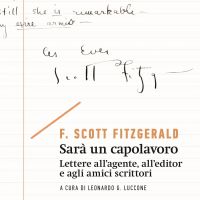 still she is remarkable—
my errer armed—
As Ever
Scott Fitzg
F. SCOTT FITZGERALD
Sarà un capolavoro
Lettere all'agente, all'editor
e agli amici scrittori
A CURA DI LEONARDO G. LUCCONE